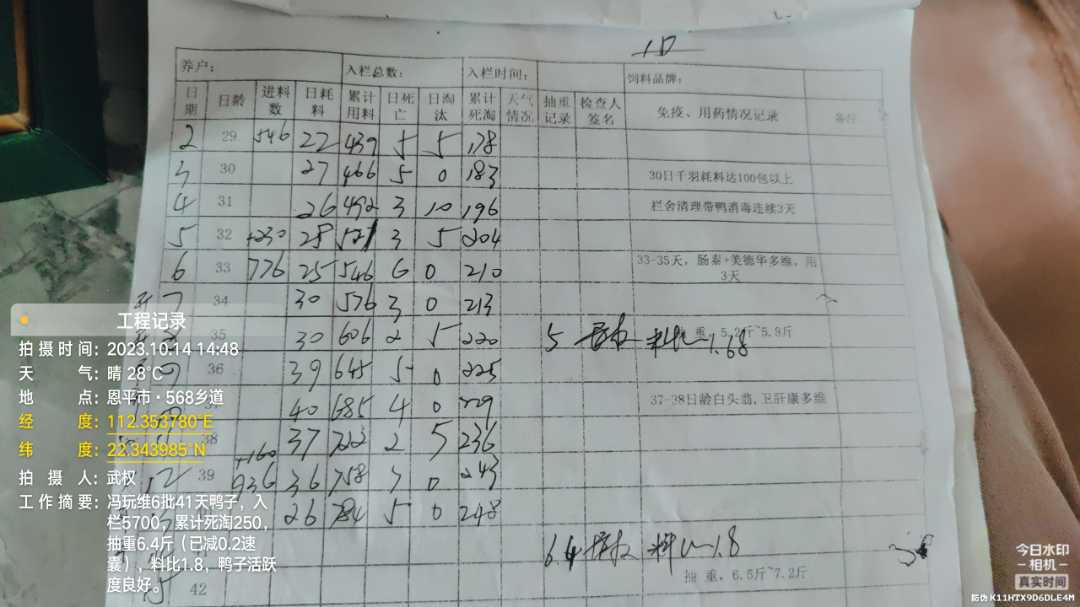 养户： 入栏总数： 入栏时间： 饲料品牌：
日期 日龄 进料数 日耗料 累计用料 日死亡 日淘汰 累计死淘 天气情况 抽重记录 检查人签名 免疫、用药情况记录 备注
2 29 546 22 439 5 5 178
3 30 27 466 5 0 183 30日千羽耗料达100包以上
4 31 26 492 3 10 196 栏舍清理带鸭消毒连续3天
5 32 +230 28 521 3 5 204
6 33 776 25 546 6 0 210 33-35天，肠泰+美德华多维，用3天
7 34 30 576 3 0 213
35 30 606 2 5 220 5 料比1.68 重，5.2斤~5.9斤
9 36 39 645 5 0 225
40 685 4 0 229 37-38日龄白头翁，卫肝康多维
38 +160 37 722 2 5 236
12 39 936 36 758 7 0 243
26 784 5 0 248
6.4 料比1.8
抽 重，6.5斤~7.2斤
42
工程记录
拍摄时间：2023.10.14 14:48
天 气：晴 28℃
地 点：恩平市·568乡道
经 度：112.353780°E
纬 度：22.343985°N
拍 摄 人：武权
工作摘要：冯玩维6批41天鸭子，入
栏5700，累计死淘250，
抽重6.4斤（已减0.2速
囊），料比1.8，鸭子活跃
度良好。
今日水印
相机
真实时间
防伪 K11HTX9D6DLE4M